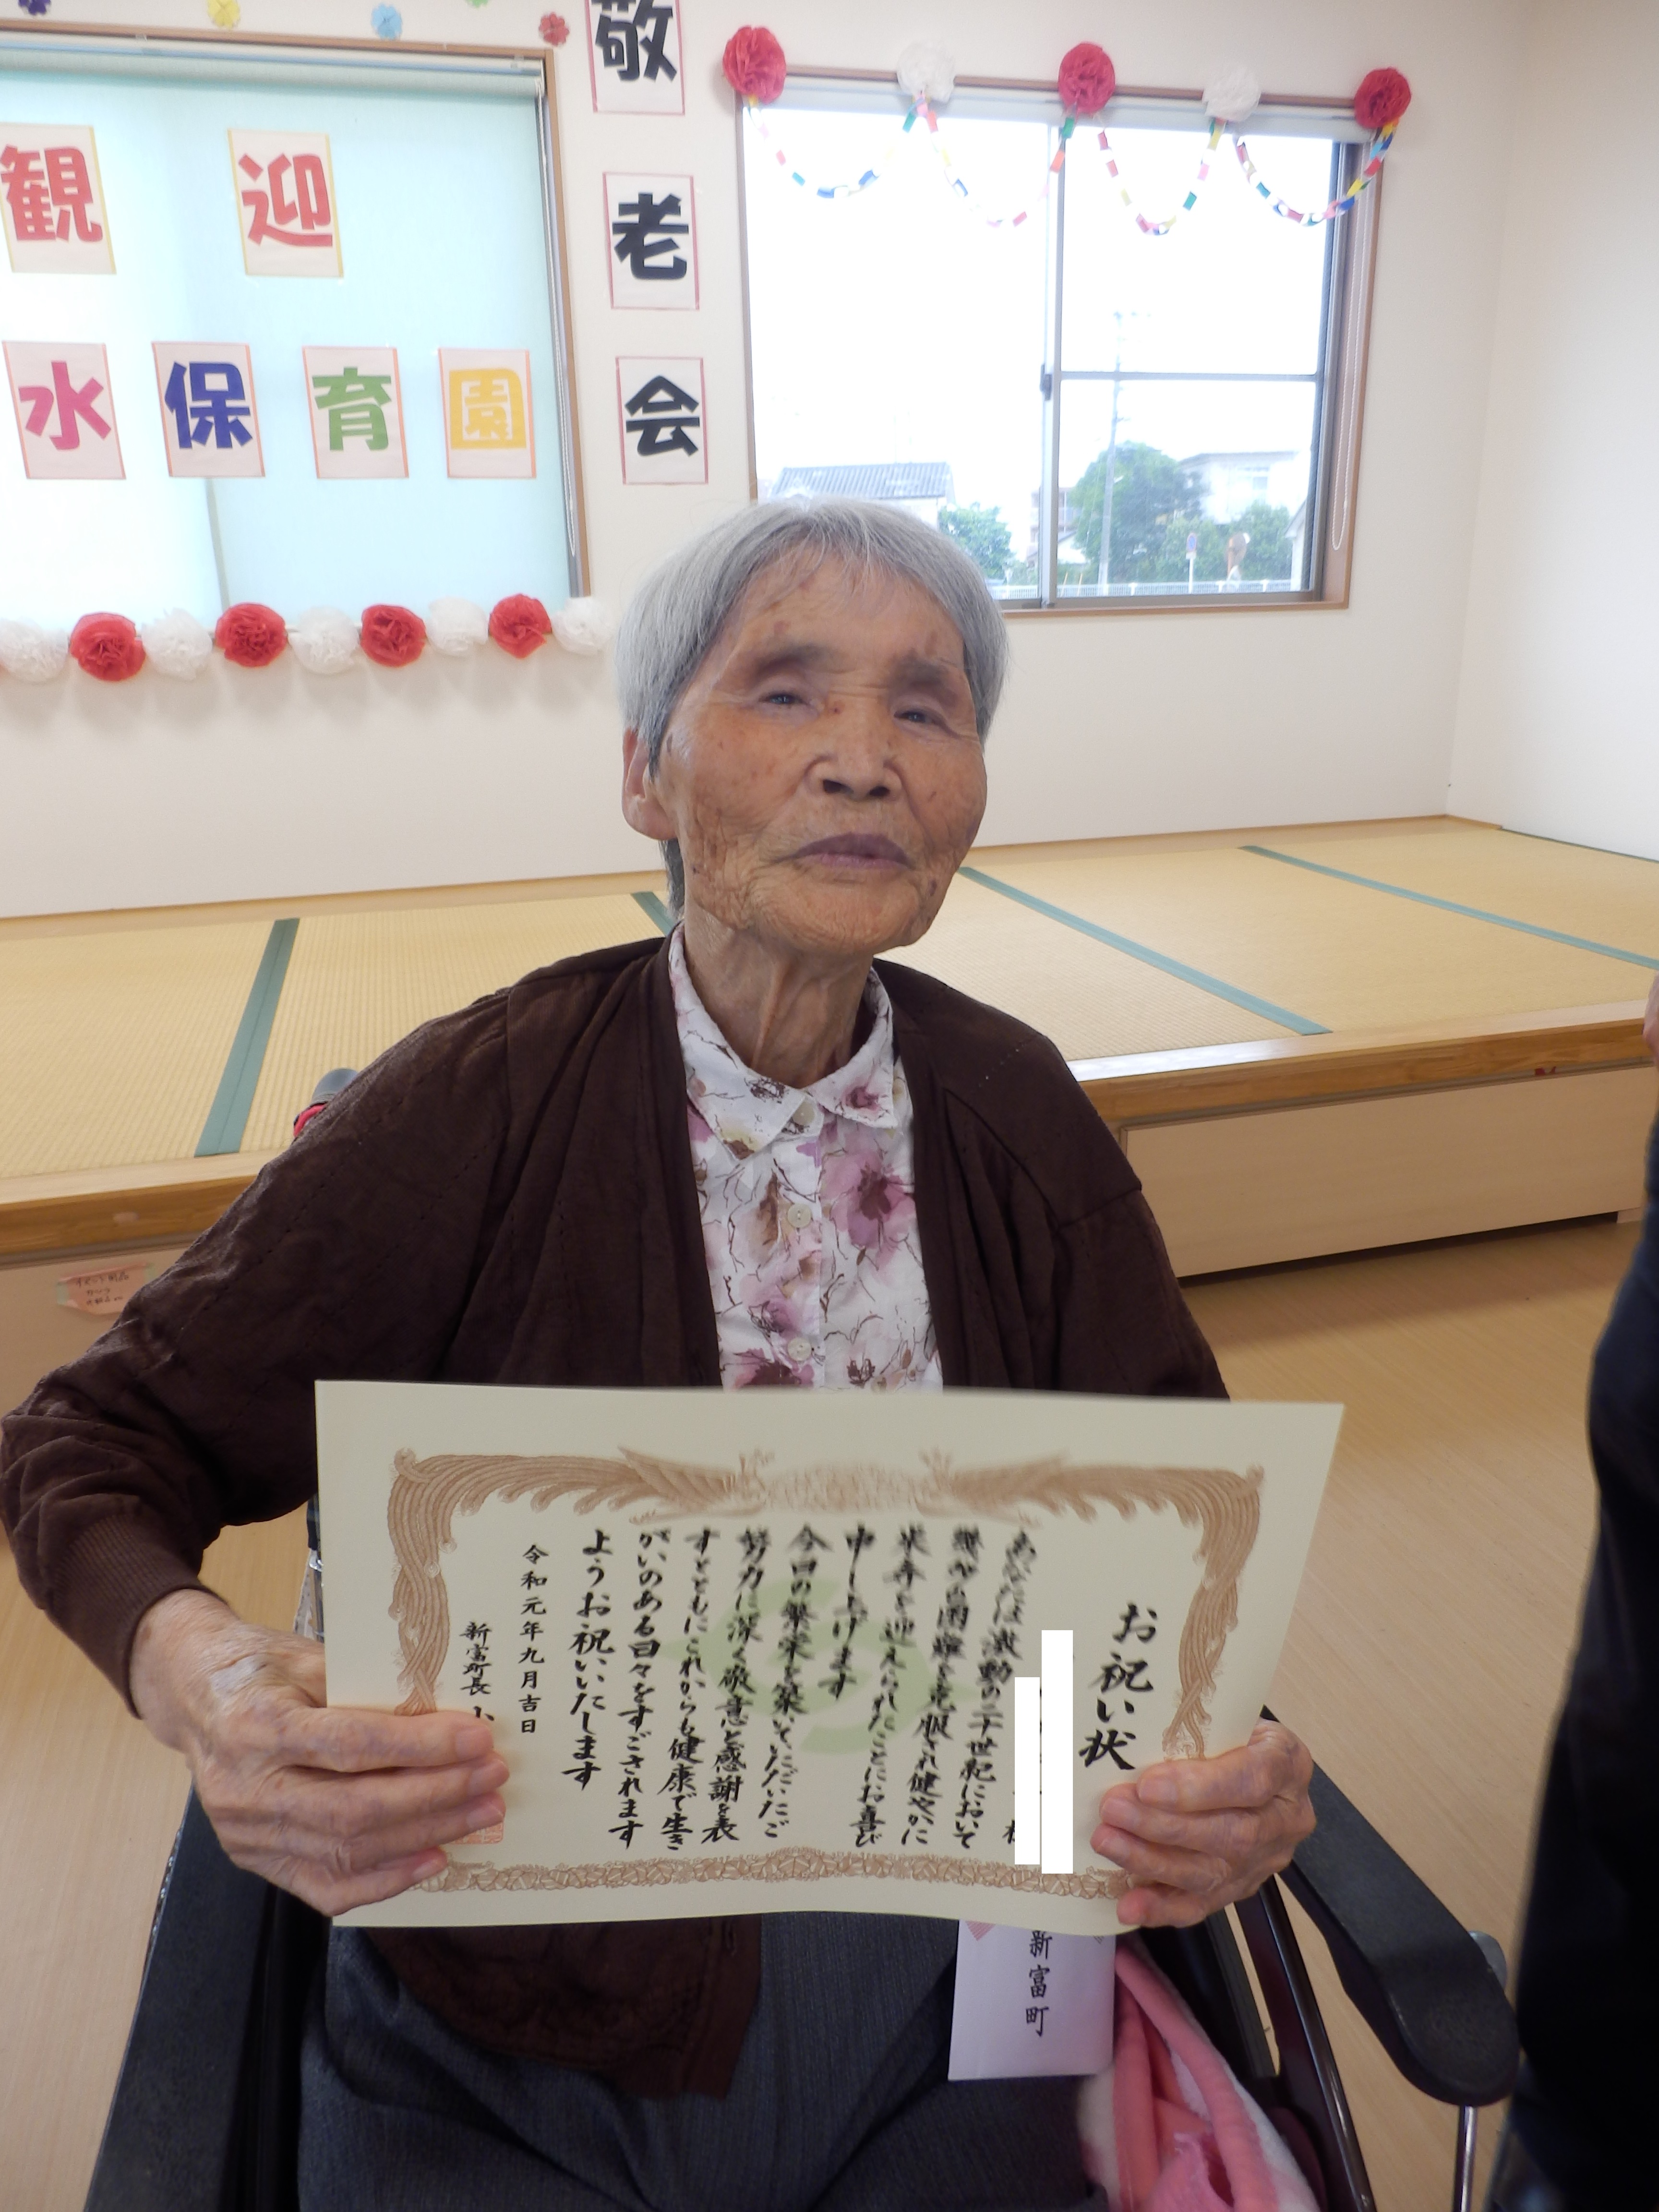 観迎
水保育園
敬老会
お祝い状
様
あなたは激動の二十世紀において
幾多の困難を克服され健やかに
米寿を迎えられたことにお喜び
申し上げます
今日の繁栄を築いていただいたご
努力に深く敬意と感謝を表
すとともにこれからも健康で生き
がいのある日々をすごされます
ようお祝いいたします
令和元年九月吉日
新富町長 小
新富町